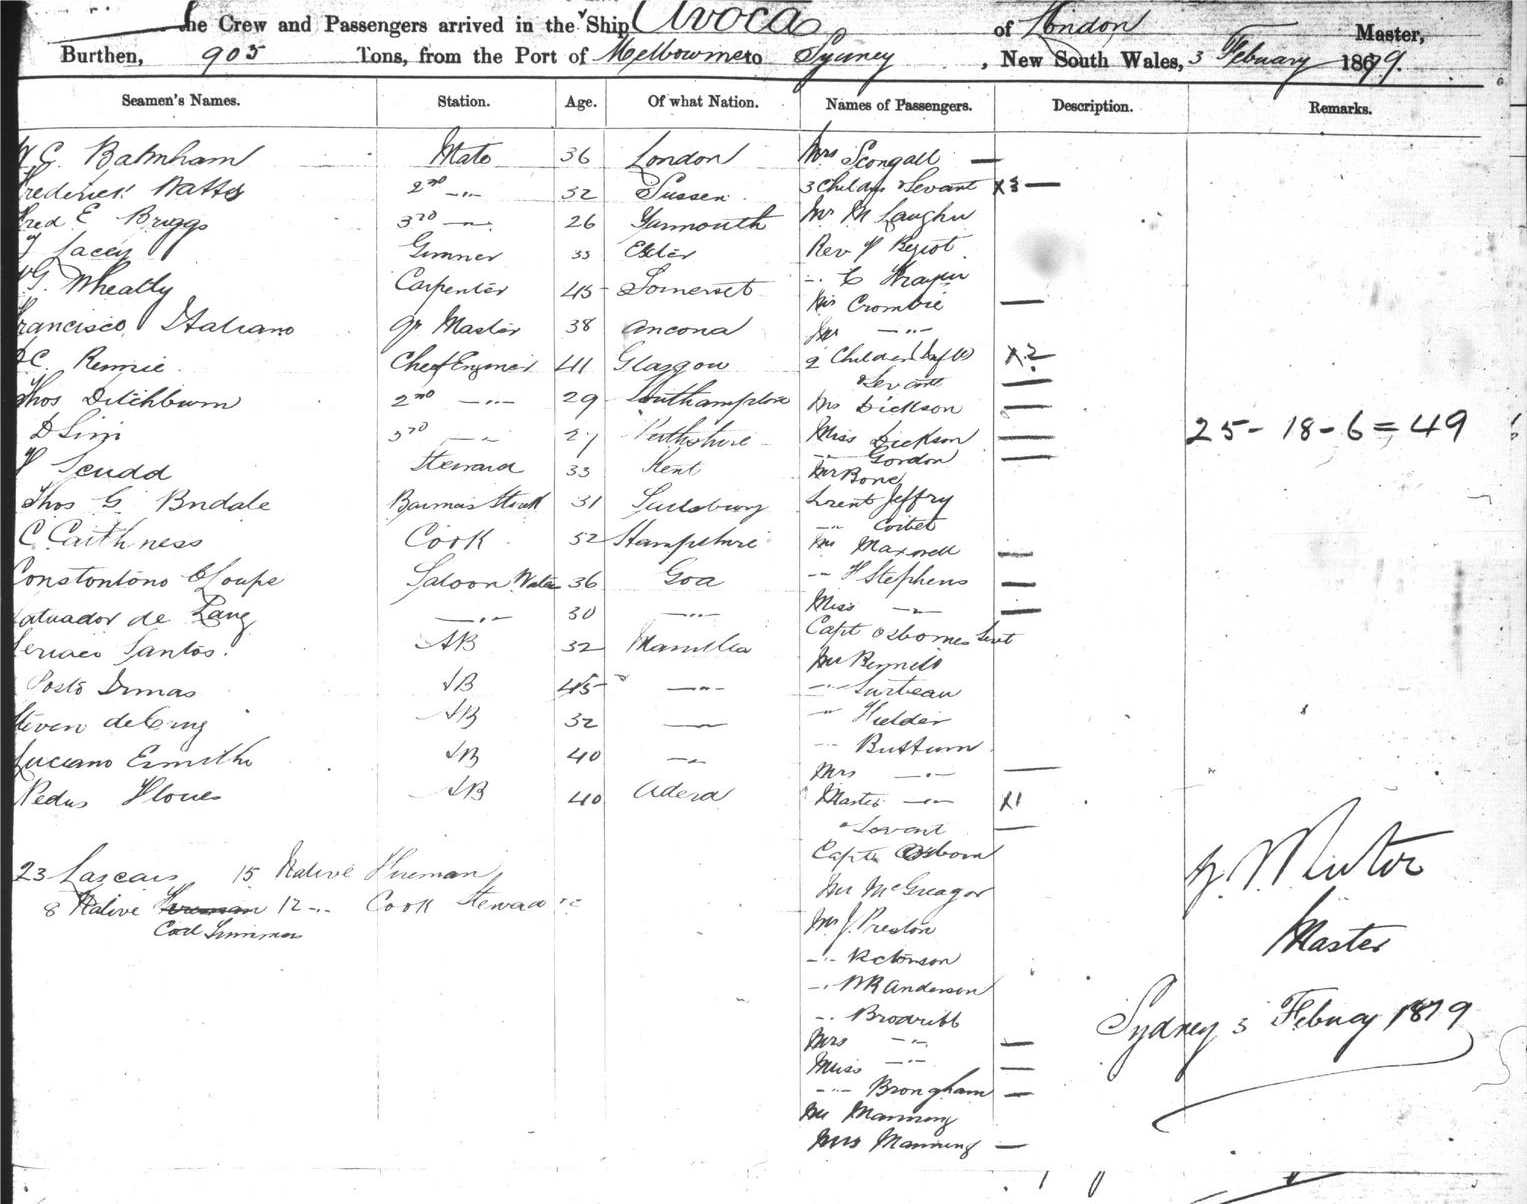 the Crew and Passengers arrived in the Ship Avoca of London Master,
Burthen, 905 Tons, from the Port of Melbourne to Sydney, New South Wales, 3 Febuary 1879.
Seamen's Names. Station. Age. Of what Nation. Names of Passengers. Description. Remarks.
G. Barnham Mate 36 London Mrs Scongall —
Frederick Watts 2nd -"- 32 Sussex 3 Childn & Servant X3 —
Fred E Briggs 3rd -"- 26 Yarmouth Mr
Lacey Gunner 33 Exeter Rev
G. Wheatly Carpenter 45 Somerset -"- C
Mrs Crombie —
Francisco Italiano Qr Master 38 Ancona Mr -"-
C. Rennie Cheef Enginer 41 Glasgow 2 Children X2
& Servant —
Thos Ditchburn 2nd -"- 29 Southampton Mrs Dickson —
D Sim 3rd -"- 27 Perthshire Miss Dickson —
25 - 18 - 6 = 49
-"- Gordon —
Scudd Steward 33 Kent Mr Bone
Thos G. Bndale 31 Lieut Jeffry
-"- Corbet
C. Caithness Cook 52 Hampshire Maxwell —
Constontono Saloon 36 Goa -"- H Stephens —
de -"- 30 -"- Miss -"- —
Santos. AB 32 Manilla Capt Osbornes Servt
Mr Bennett
Posto Dimas AB 45 -"-
Steven de Cruz AB 32 -"- -"- Fielder
Luciano AB 40 -"- -"- Buttum
Mrs -"- —
Pedus Flores AB 40 Master -"- X1
& Servant —
Capt Osborn
23 Lascars 15 Native Fireman
Mr McGreagor
8 Native Fireman 12 -"- Cook Steward &c
Coal Trimmer
Mr J. Preston
-"- Robinson
-"- WR Anderson
-"- Brodribb
Mrs -"- —
Miss -"- —
-"- Brongham —
Mr Manning
Mrs Manning —
Master
Sydney 3 Febuay 1879